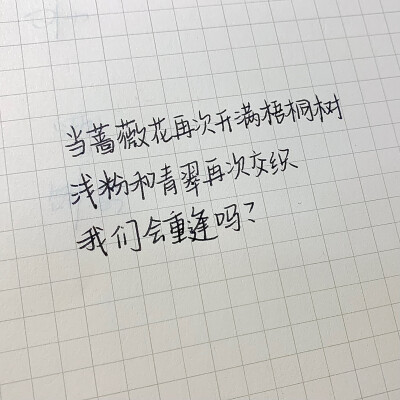 当蔷薇花再次开满梧桐树
浅粉和青翠再次交织
我们会重逢吗?